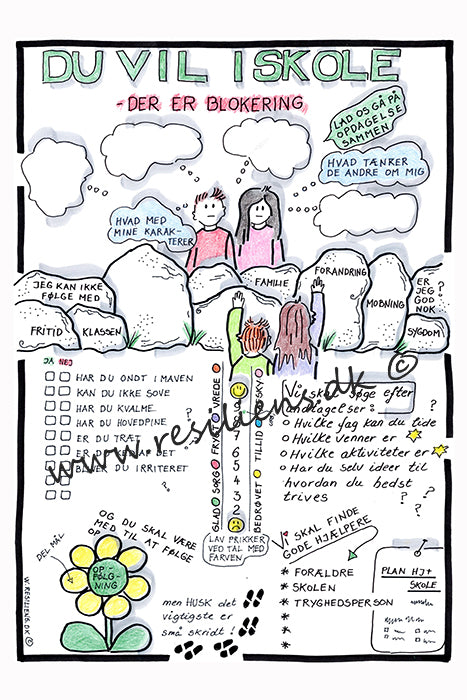 DU VIL I SKOLE
- DER ER BLOKERING
LAD OS GÅ PÅ
OPDAGELSE
SAMMEN
HVAD TÆNKER
DE ANDRE OM MIG
HVAD MED
MINE KARAK-
TERER
JEG KAN IKKE
FØLGE MED
FRITID
KLASSEN
FAMILIE
FORANDRING
MOBNING
ER
JEG
GOD
NOK
SYGDOM
JA NEJ
HAR DU ONDT I MAVEN
KAN DU IKKE SOVE
HAR DU KVALME
HAR DU HOVEDPINE
ER DU TRÆT
BLIVER DU IRRITERET
GLAD SORG FRYGT VREDE
BEDRØVET TILLID
6
5
4
3
2
LAV PRIKKER
VED TAL MED
FARVEN
søge efter
Hvilke fag kan du lide
Hvilke venner er
Hvilke aktiviteter er
Har du selv ideer til
hvordan du bedst
trives
www.resiliens.dk ©
OG DU SKAL VÆRE
MED TIL AT FØLGE
OP
DEL MÅL
OP-
FØLG-
NING
men HUSK det
vigtigste er
små skridt!
SKAL FINDE
GODE HJÆLPERE
* FORÆLDRE
* SKOLEN
* TRYGHEDSPERSON
*
*
*
PLAN HJ+
SKOLE
W.RESILIENS.DK ©